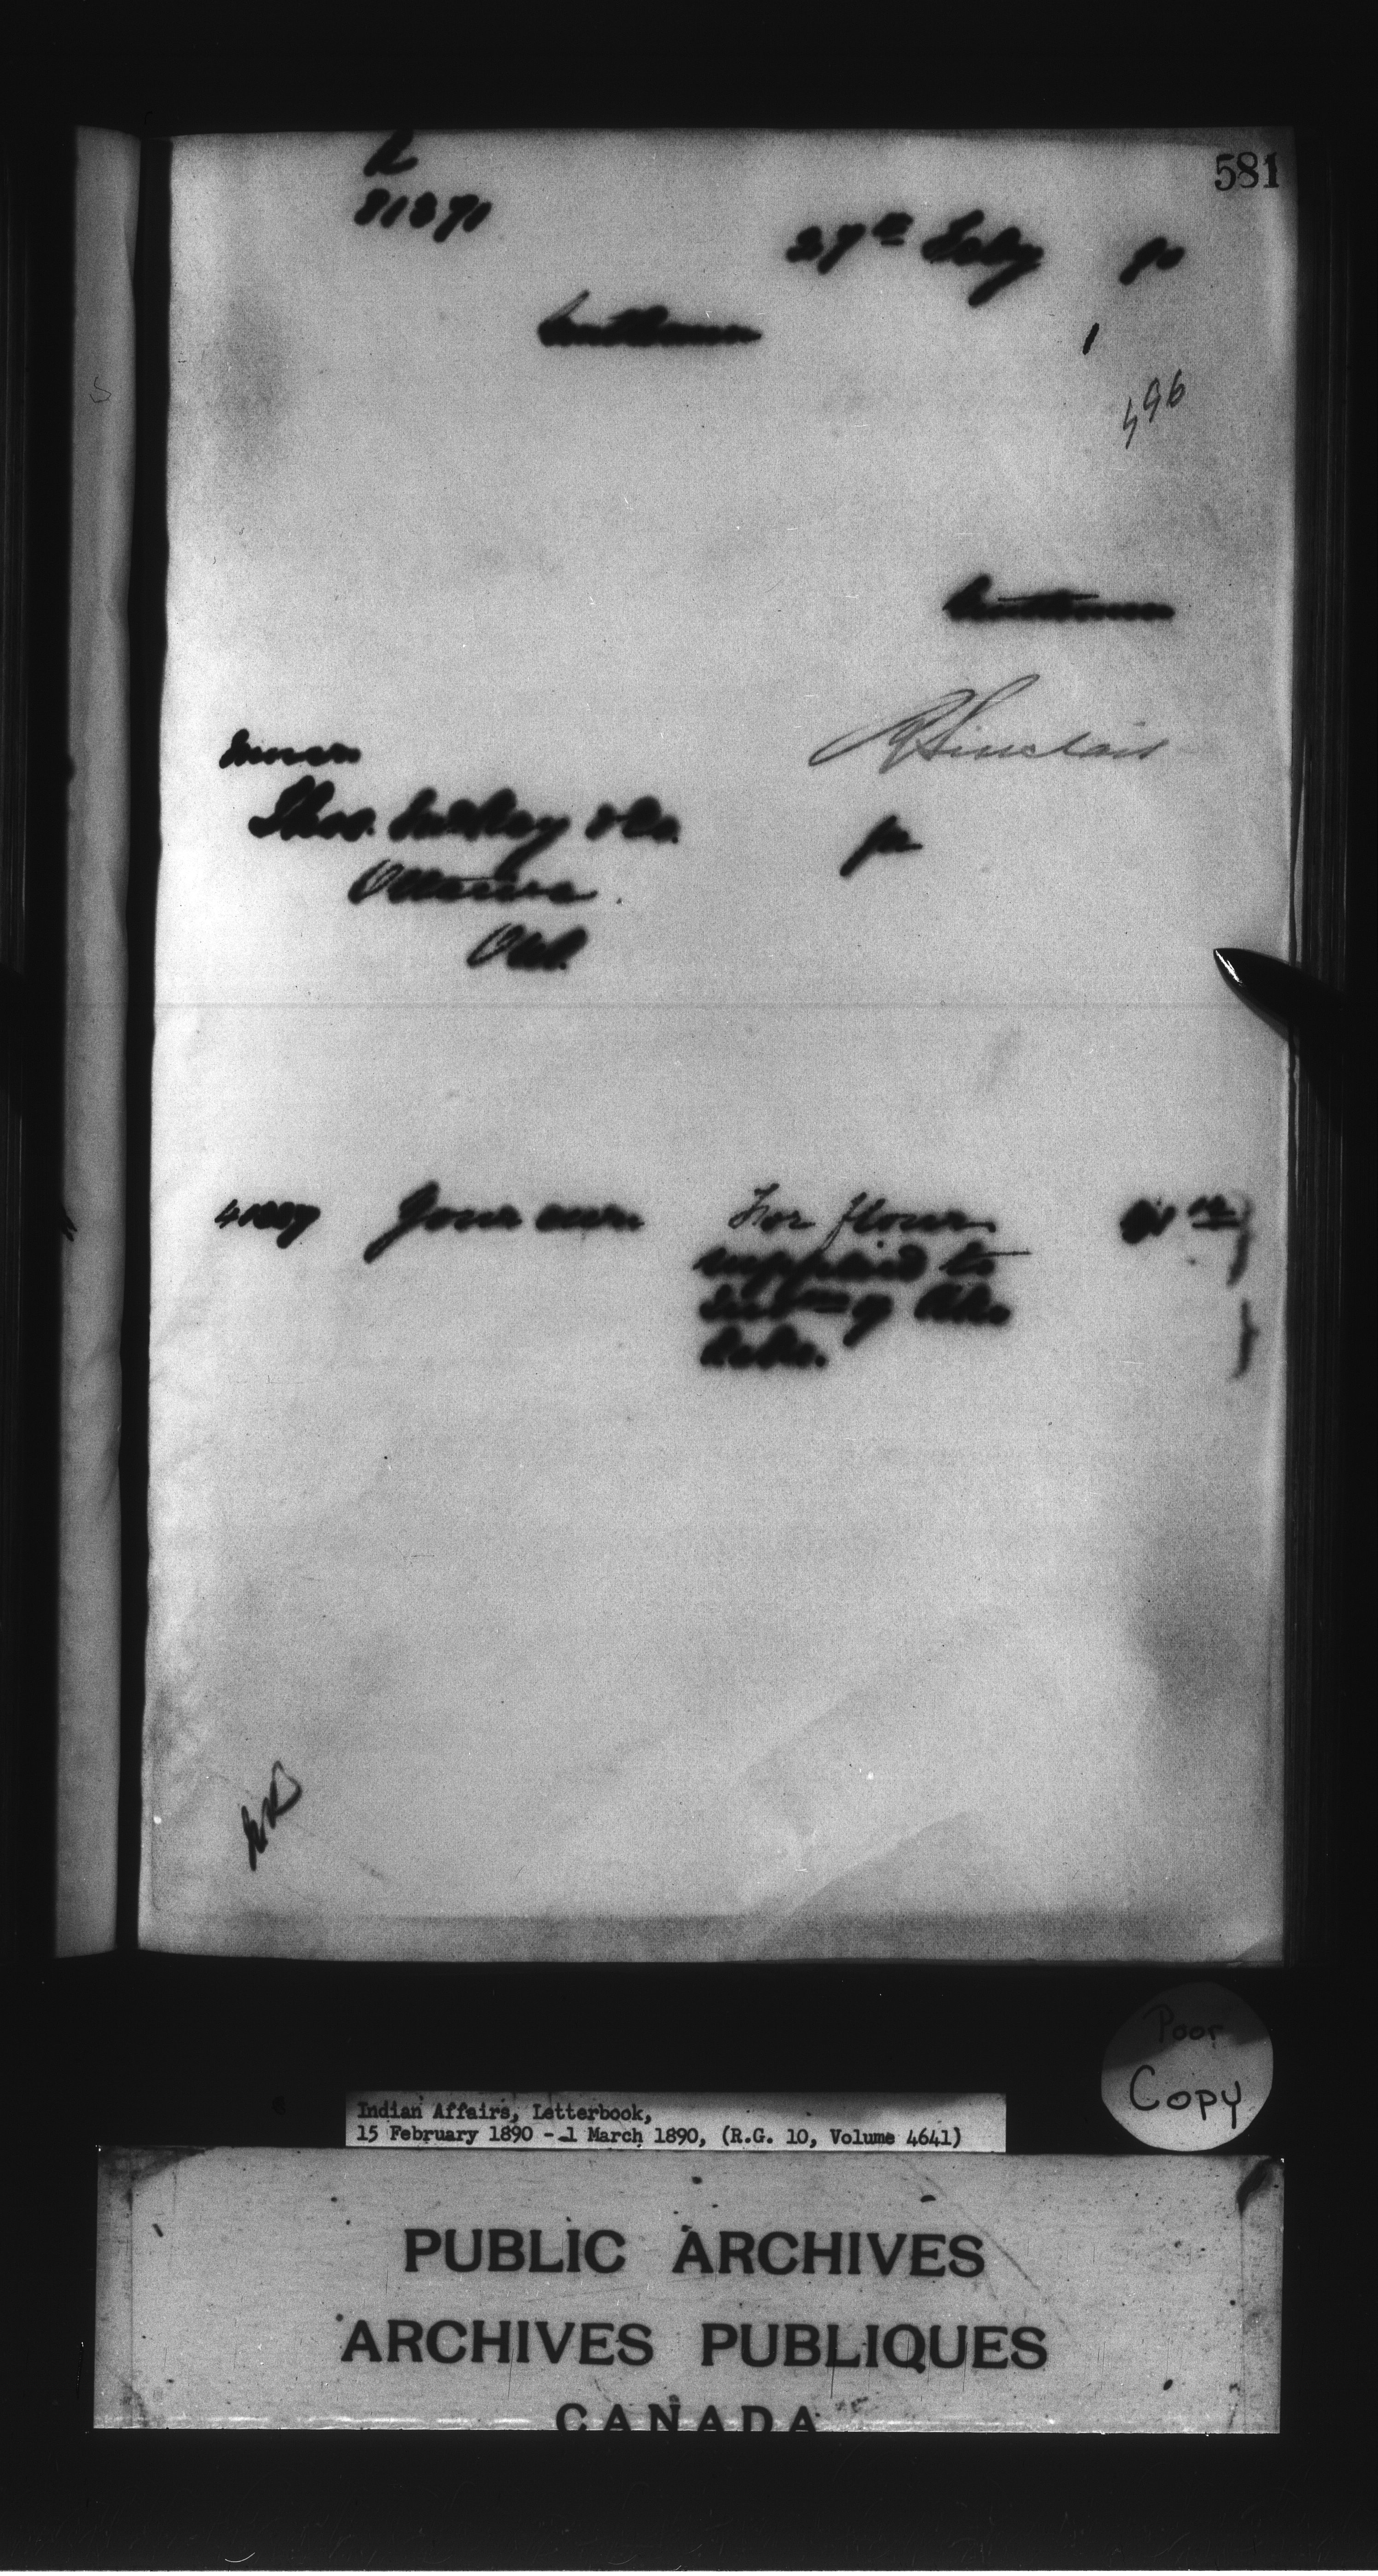 581
L
81371
27th Feby 90
Gentlemen
1
496
Gentlemen
R Sinclair
Messrs
Thos. McKay & Co.
for
Ottawa.
Ont.
Your own For flour
supplied to
Poor
Copy
Indian Affairs, Letterbook,
15 February 1890 - 1 March 1890, (R.G. 10, Volume 4641)
PUBLIC ARCHIVES
ARCHIVES PUBLIQUES
CANADA